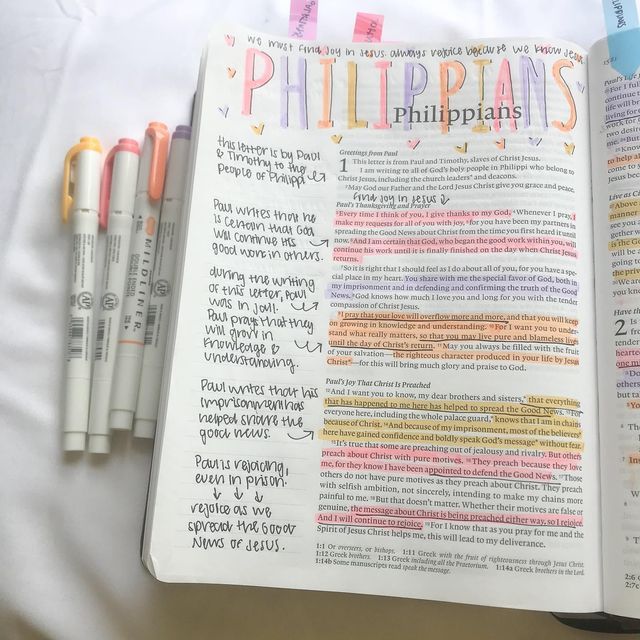 we must find joy in Jesus. always rejoice because we know Jesus.
PHILIPPIANS
Philippians
this letter is by Paul
& Timothy to the
people of Philippi
Greetings from Paul
1 This letter is from Paul and Timothy, slaves of Christ Jesus.
I am writing to all of God's holy people in Philippi who belong to
Christ Jesus, including the church leaders* and deacons.
2 May God our Father and the Lord Jesus Christ give you grace and peace.
find joy in Jesus
Paul's Thanksgiving and Prayer
3 Every time I think of you, I give thanks to my God. 4 Whenever I pray, I
make my requests for all of you with joy, 5 for you have been my partners in
spreading the Good News about Christ from the time you first heard it until
now. 6 And I am certain that God, who began the good work within you, will
continue his work until it is finally finished on the day when Christ Jesus
returns.
7 So it is right that I should feel as I do about all of you, for you have a spe-
cial place in my heart. You share with me the special favor of God, both in
my imprisonment and in defending and confirming the truth of the Good
News. 8 God knows how much I love you and long for you with the tender
compassion of Christ Jesus.
9 I pray that your love will overflow more and more, and that you will keep
on growing in knowledge and understanding. 10 For I want you to under-
stand what really matters, so that you may live pure and blameless lives
until the day of Christ's return. 11 May you always be filled with the fruit
of your salvation—the righteous character produced in your life by Jesus
Christ*—for this will bring much glory and praise to God.
Paul writes that he
is certain that God
will continue his
good work in others.
during the writing
of this letter, Paul
was in jail.
Paul prays that they
will grow in
knowledge &
understanding.
Paul's Joy That Christ Is Preached
12 And I want you to know, my dear brothers and sisters,* that everything
that has happened to me here has helped to spread the Good News. 13 For
everyone here, including the whole palace guard,* knows that I am in chains
because of Christ. 14 And because of my imprisonment, most of the believers*
here have gained confidence and boldly speak God's message* without fear.
15 It's true that some are preaching out of jealousy and rivalry. But others
preach about Christ with pure motives. 16 They preach because they love
me, for they know I have been appointed to defend the Good News. 17 Those
others do not have pure motives as they preach about Christ. They preach
with selfish ambition, not sincerely, intending to make my chains more
painful to me. 18 But that doesn't matter. Whether their motives are false or
genuine, the message about Christ is being preached either way, so I rejoice.
And I will continue to rejoice. 19 For I know that as you pray for me and the
Spirit of Jesus Christ helps me, this will lead to my deliverance.
Paul writes that his
imprisonment has
helped share the
good news.
Paul is rejoicing,
even in prison.
rejoice as we
spread the Good
News of Jesus.
1:1 Or overseers, or bishops. 1:11 Greek with the fruit of righteousness through Jesus Christ.
1:12 Greek brothers. 1:13 Greek including all the Praetorium. 1:14a Greek brothers in the Lord.
1:14b Some manuscripts read speak the message.
MILDLINER